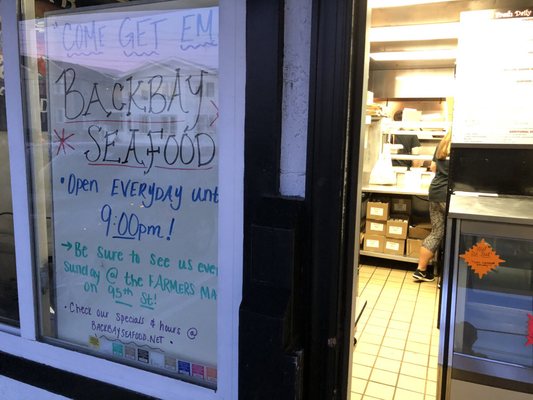 "COME GET EM
BACKBAY
SEAFOOD
• Open EVERYDAY unt
9:00pm!
→ Be sure to see us eve
sunday @ the FARMERS MA
on 95th St!
• Check our specials & hours @
BACKBAYSEAFOOD.NET •
Fresh Daily